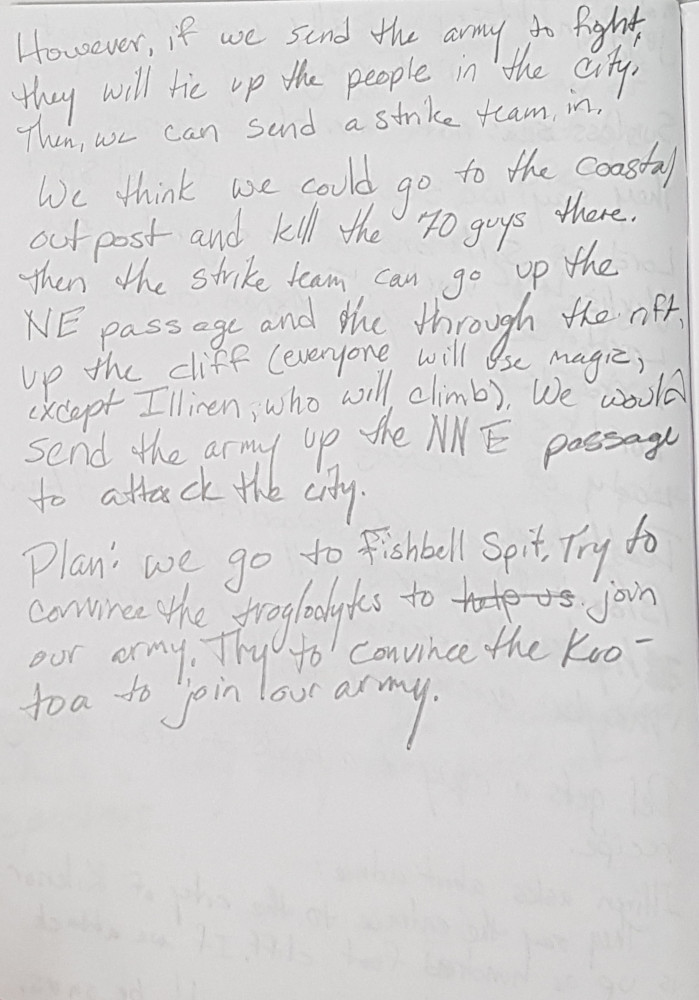 However, if we send the army to fight,
they will tie up the people in the city.
Then, we can send a strike team, in.
We think we could go to the coastal
outpost and kill the 70 guys there.
Then the strike team can go up the
NE passage and the through the rift,
up the cliff (everyone will use magic,
except Illiren, who will climb). We would
send the army up the NNE passage
to attack the city.
Plan: we go to Fishbell Spit. Try to
convince the troglodytes to help us. join
our army. Try to convince the Kuo-
toa to join our army.